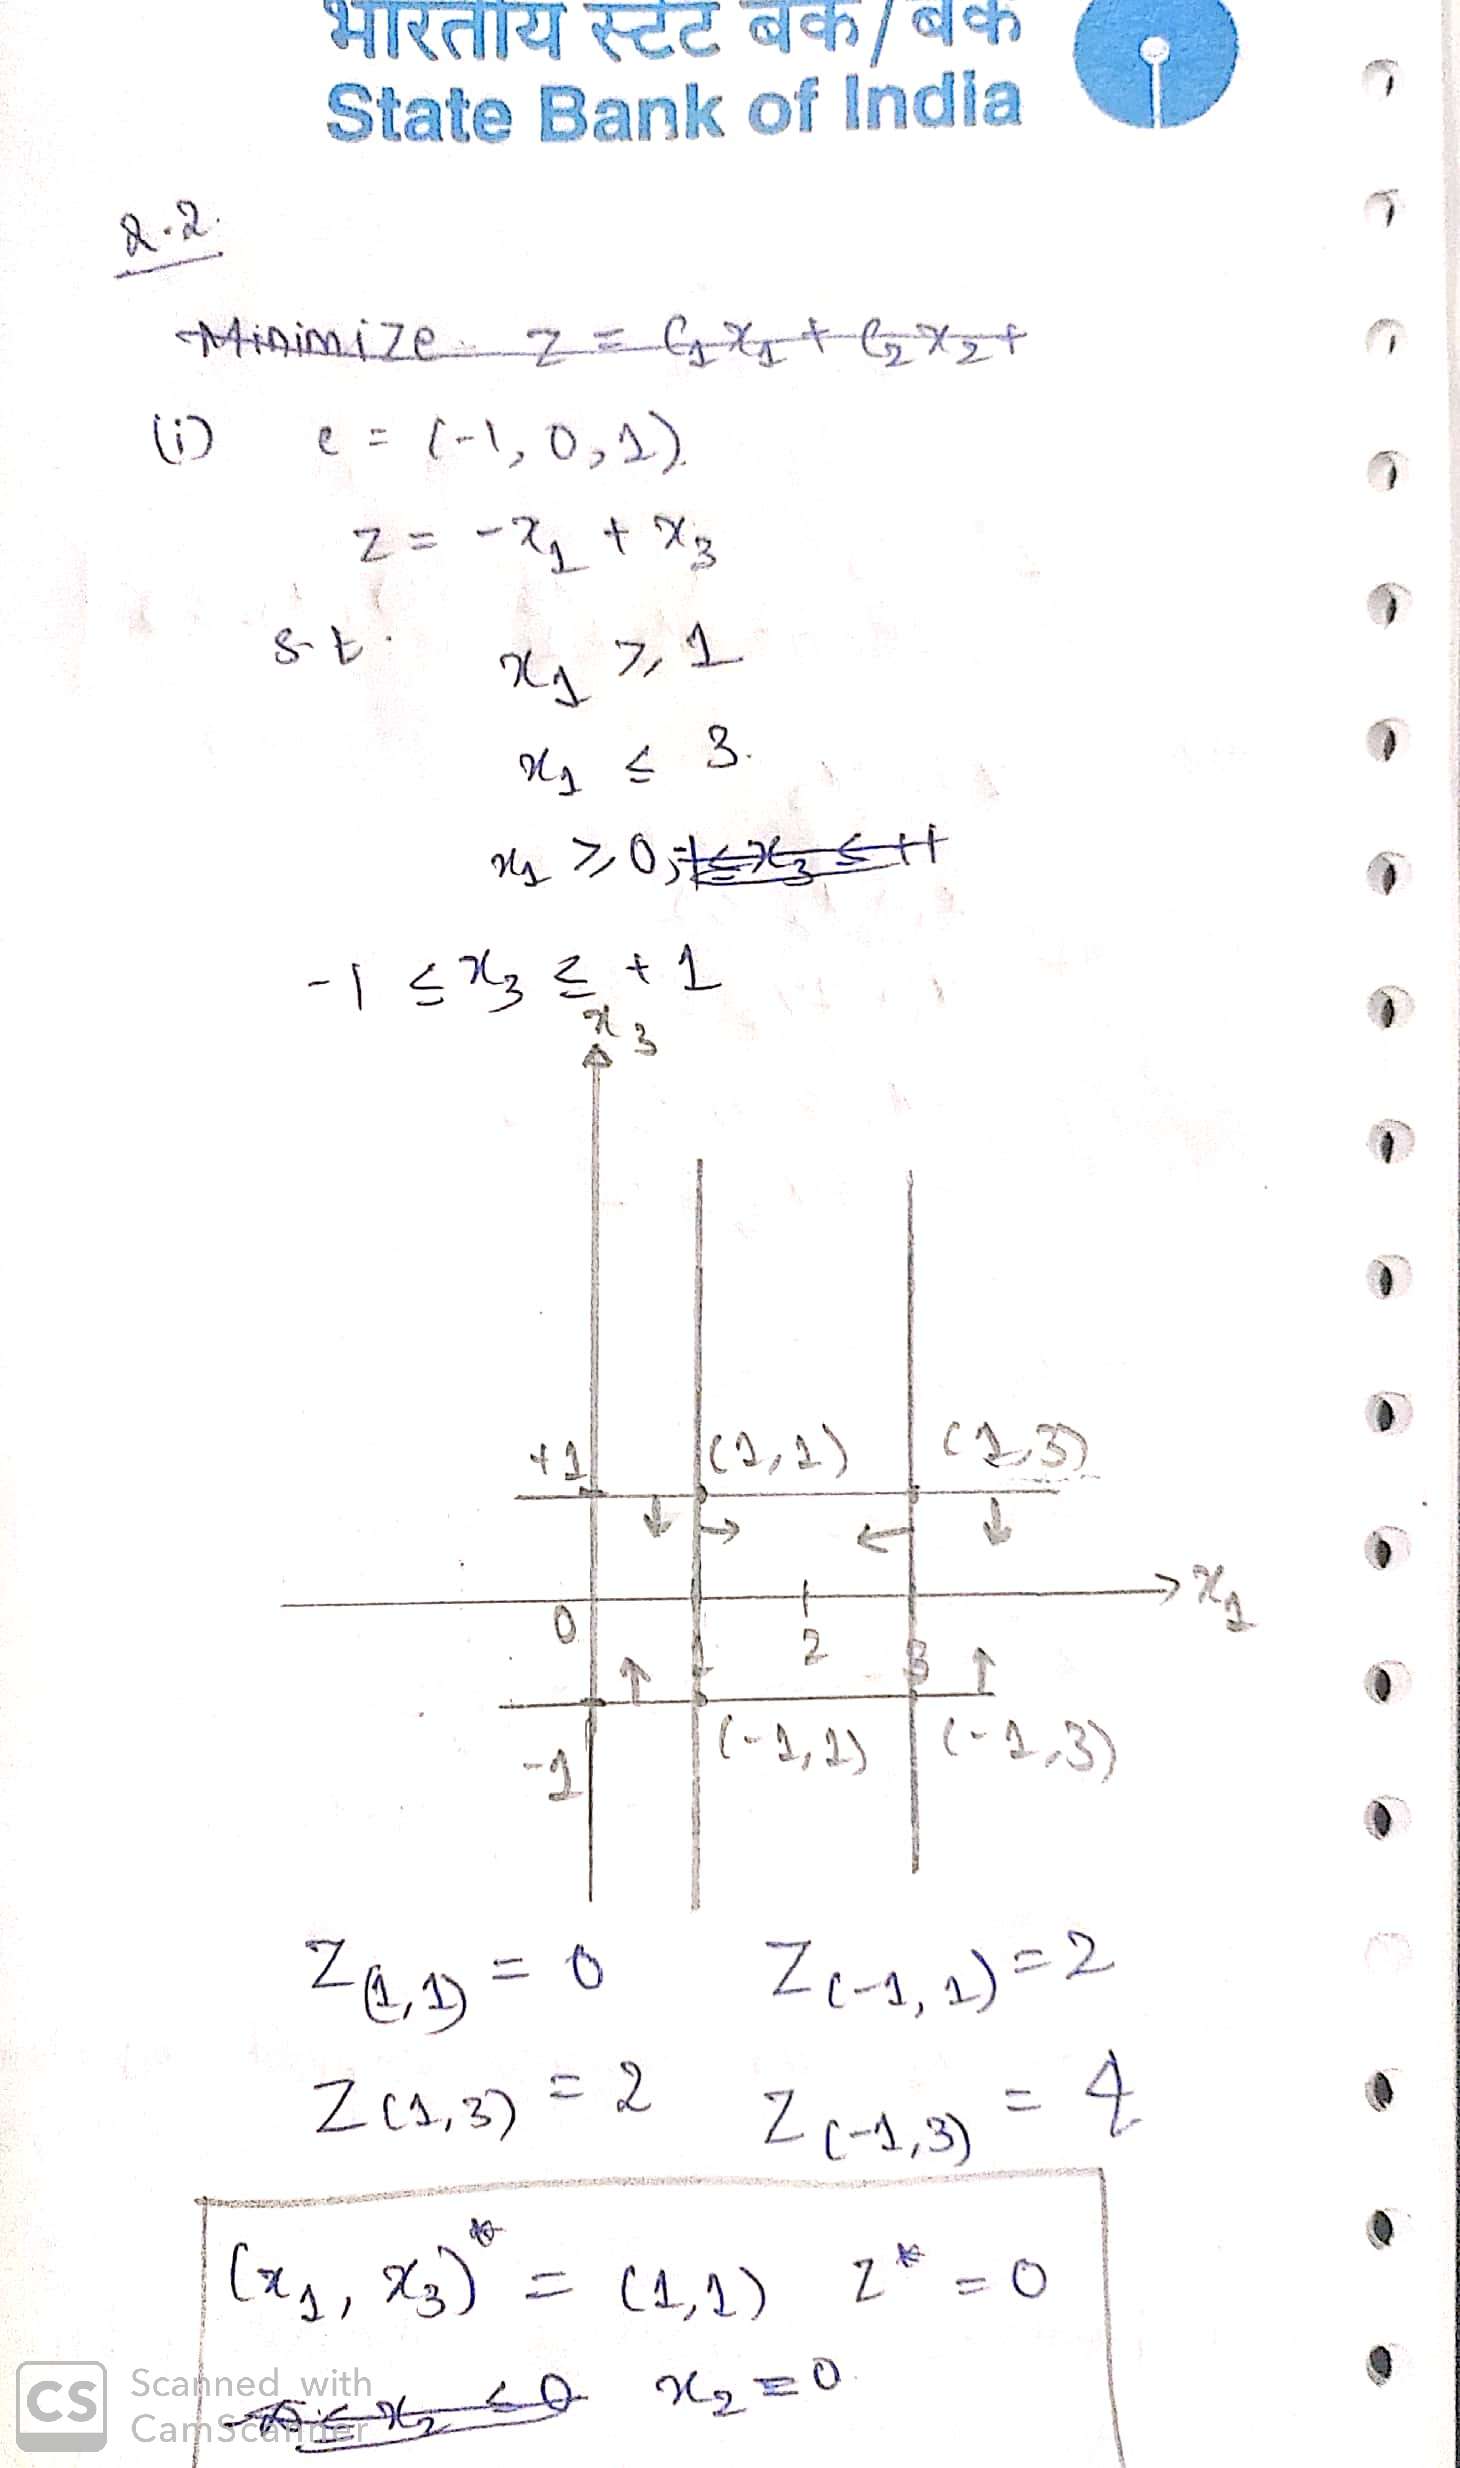 भारतीय स्टेट बैंक/बैंक
State Bank of India
2.2.
Minimize z = C₁x₁ + C₂x₂ +
(i) c = (-1, 0, 1)
z = -x₁ + x₃
s.t. x₁ ≥ 1
x₁ ≤ 3.
x₁ ≥ 0,
-1 ≤ x₃ ≤ +1
x₃
+1 (1,1) (1,3)
x₁
0 1 2 3
-1 (-1,1) (-1,3)
Z(1,1) = 0 Z(-1,1) = 2
Z(1,3) = 2 Z(-1,3) = 4
(x₁, x₃)* = (1,1) z* = 0
x₂ = 0.
CS Scanned with
CamScanner